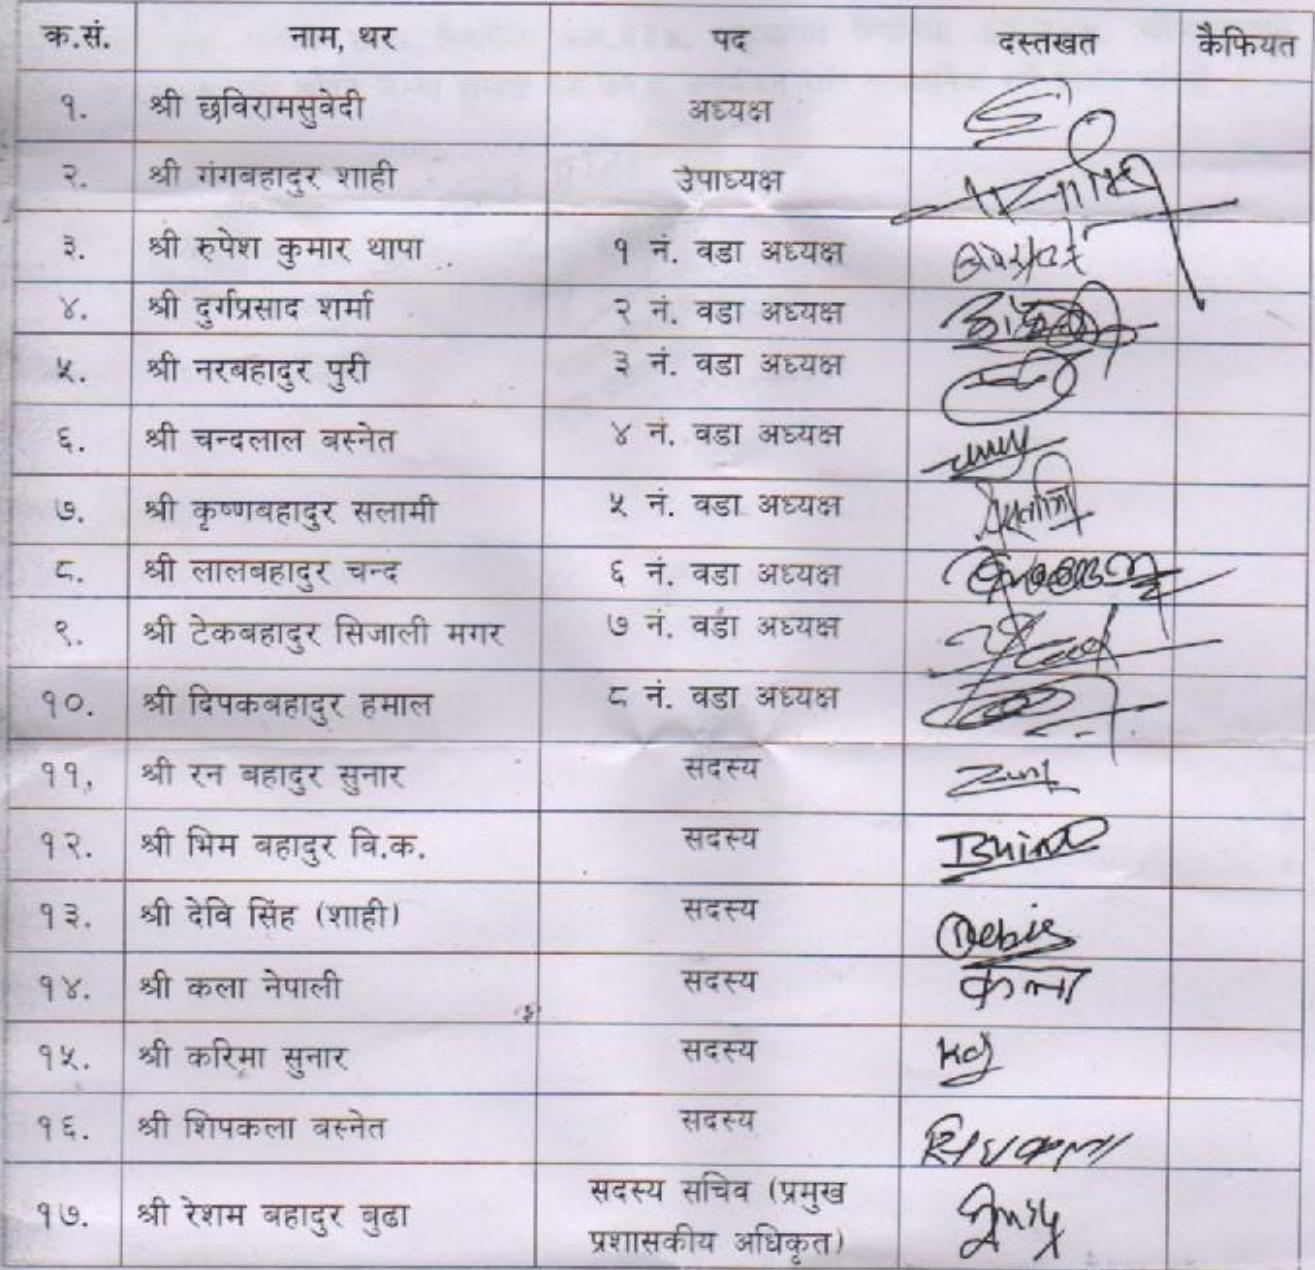 क.सं. नाम, थर पद दस्तखत कैफियत
१. श्री छविरामसुवेदी अध्यक्ष
२. श्री गंगबहादुर शाही उपाध्यक्ष
३. श्री रुपेश कुमार थापा १ नं. वडा अध्यक्ष
४. श्री दुर्गप्रसाद शर्मा २ नं. वडा अध्यक्ष
५. श्री नरबहादुर पुरी ३ नं. वडा अध्यक्ष
६. श्री चन्दलाल बस्नेत ४ नं. वडा अध्यक्ष
७. श्री कृष्णबहादुर सलामी ५ नं. वडा अध्यक्ष
८. श्री लालबहादुर चन्द ६ नं. वडा अध्यक्ष
९. श्री टेकबहादुर सिजाली मगर ७ नं. वडा अध्यक्ष
१०. श्री दिपकबहादुर हमाल ८ नं. वडा अध्यक्ष
११. श्री रन बहादुर सुनार सदस्य
१२. श्री भिम बहादुर वि.क. सदस्य
१३. श्री देवि सिंह (शाही) सदस्य
१४. श्री कला नेपाली सदस्य कला
१५. श्री करिमा सुनार सदस्य
१६. श्री शिपकला वस्नेत सदस्य
१७. श्री रेशम बहादुर बुढा सदस्य सचिव (प्रमुख
प्रशासकीय अधिकृत)